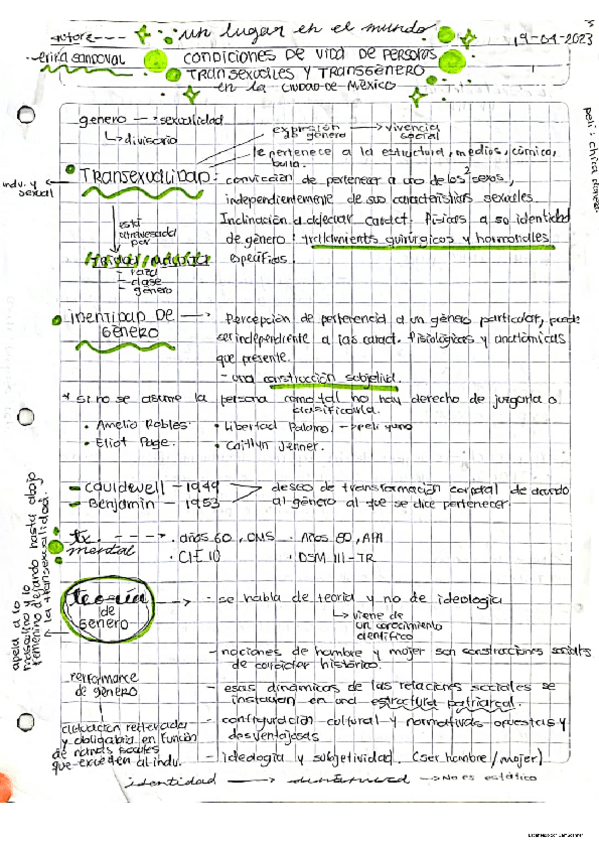 autora
un lugar en el mundo
19-01-2023
erika sandoval
CONDICIONES DE VIDA DE PERSONAS
TRANSEXUALES Y TRANSGENERO
en la CIUDAD DE MÉXICO
peli: chica danesa
genero → sexualidad
↳ divisorio
expresión de género → vivencia social
le pertenece a la estructura, medios, cómico,
burla.
indv. y sexual
• TRANSEXUALIDAD: convicción de pertenecer a uno de los 2 sexos,
independientemente de sus características sexuales.
Inclinación a adecuar caract. físicas a su identidad
de género: tratamientos quirúrgicos y hormonales
específicos.
está
atravesada
por
- raza
- clase
- género
• IDENTIDAD DE GENERO → Percepción de pertenencia a un género particular, puede
ser independiente a las caract. fisiológicas y anatómicas
que presente.
- una construcción subjetiva.
* si no se asume la persona como tal no hay derecho de juzgarla o
clasificarla.
• Amelio Robles • Libertad Palomo → peli yuno
• Eliot Page. • Caitlyn Jenner.
- Cauldwell - 1949
- Benjamin - 1953
deseo de transformación corporal de acuerdo
al género al que se dice pertenecer.
• tx. mental → • años 60, OMS • Años 80, APA
• CIE 10 • DSM III-TR
apela a lo
masculino y lo
femenino dejando hasta abajo
la transexualidad.
teoría
de
genero
- se habla de teoría y no de ideología
↳ viene de
un conocimiento
científico
- nociones de hombre y mujer son construcciones sociales
de carácter histórico.
Performance
de género
- esas dinámicas de las relaciones sociales se
instauran en una estructura patriarcal.
actuación reiterada
y obligatoria en función
de normas sociales
que exceden al indv.
- configuración cultural y normativas opuestas y
desventajosas
- ideología y subjetividad. (ser hombre/mujer)
identidad → → No es estático